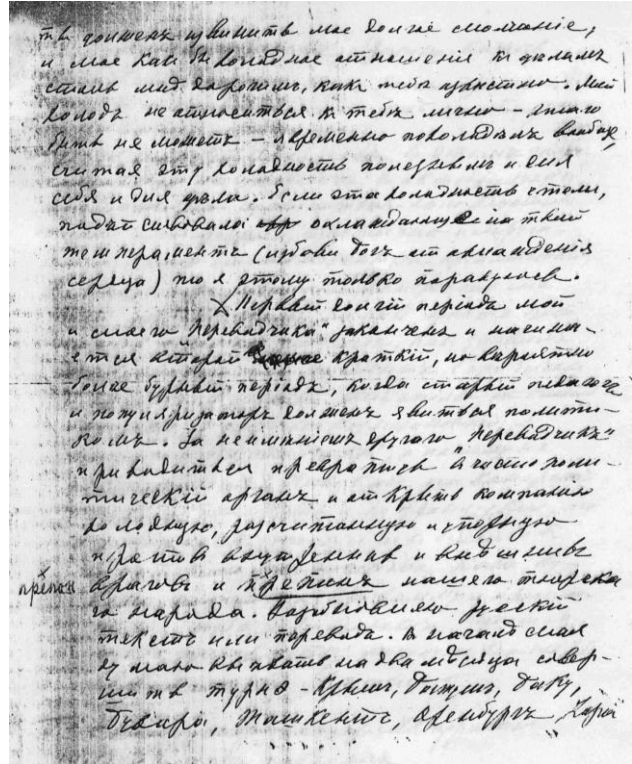 ты должен извинить мое долгое молчаніе,
и мое как бы холодное отношенія к делам
столь мид дорогим, как тебе известно. Мой
холодъ не относиться к тебе лично – этого
быть не можетъ – я временно похолодилъ вообще,
считая эту холодность полезным и для
себя и для дела. Если эта холодность столи,
подействовала охлаждающе на твой
темпераментъ (избави богъ от охлажденія
сердца) то я этому только порадуюсь.
Первый долгій періодъ мой
и моего Переводчика" законченъ и начина-
ется второй краткій, но вероятно
более бурный періодъ, когда старый педагогъ
и популяризаторъ долженъ явиться полити-
комъ. За неименіемъ другого Переводчикъ"
приводиться превратить в чисто поли-
тическій органъ и открыть компанію
холодную, разсчитанную и упорную
против внутренних и внешнихъ
враговъ и препонъ нашего тюркска
препон
го народа. Возобновляю русскій
текстъ или перевода. В начале мая
думаю выехать на два месяца совер-
шить турнэ – Крымъ, Батумъ, Баку,
Бухара, Ташкентъ, Оренбургъ,